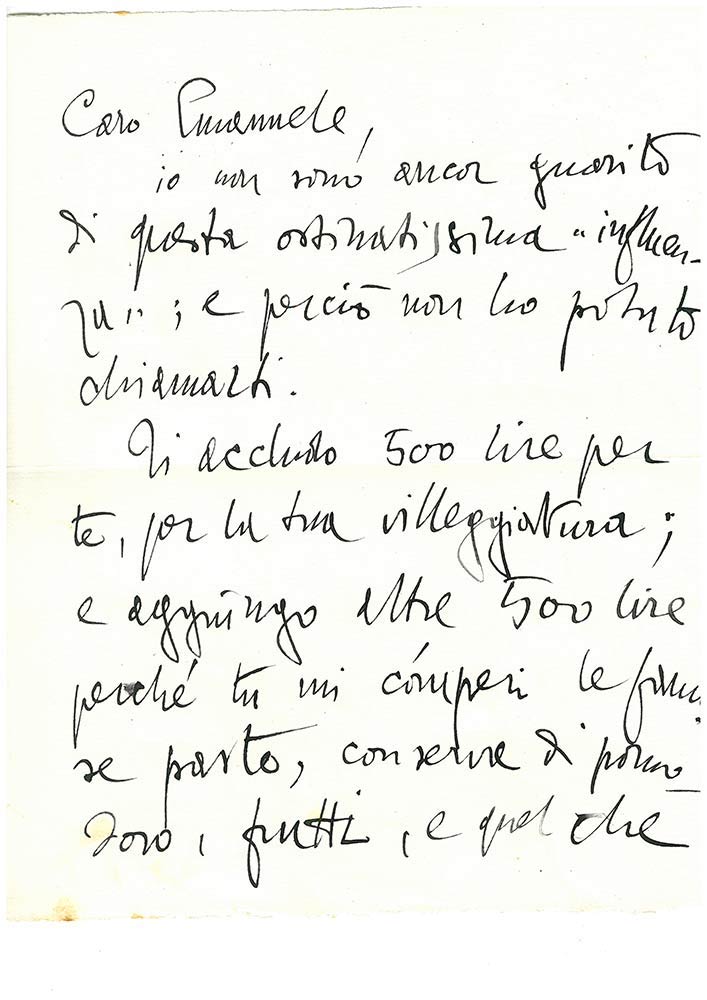 Caro Emanuele,
io non sono ancor guarito
di questa ostinatissima "influen-
za"; e perciò non ho potuto
chiamarti.
Ti accludo 500 lire per
te, per la tua villeggiatura;
e aggiungo altre 500 lire
perché tu mi cómperi le famo
se paste, conserva di pomo-
doro, frutti, e quel che